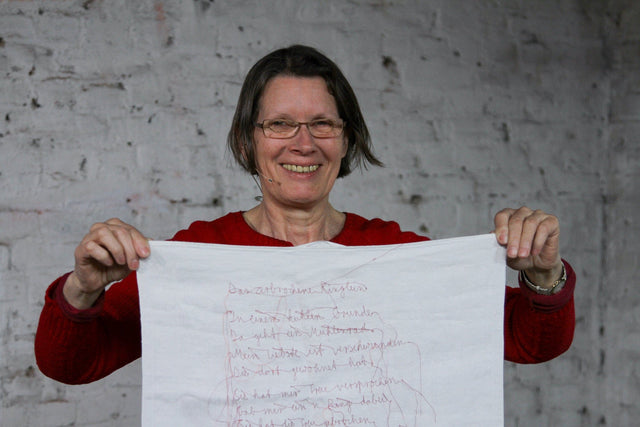 Das zerbrochene Ringlein
In einem kühlen Grunde
Da geht ein Mühlenrad
Mein Liebste ist verschwunden
Die dort gewohnet hat.
Sie hat mir Treu versprochen
Gab mir ein'n Ring dabei
Sie hat die Treu gebrochen,